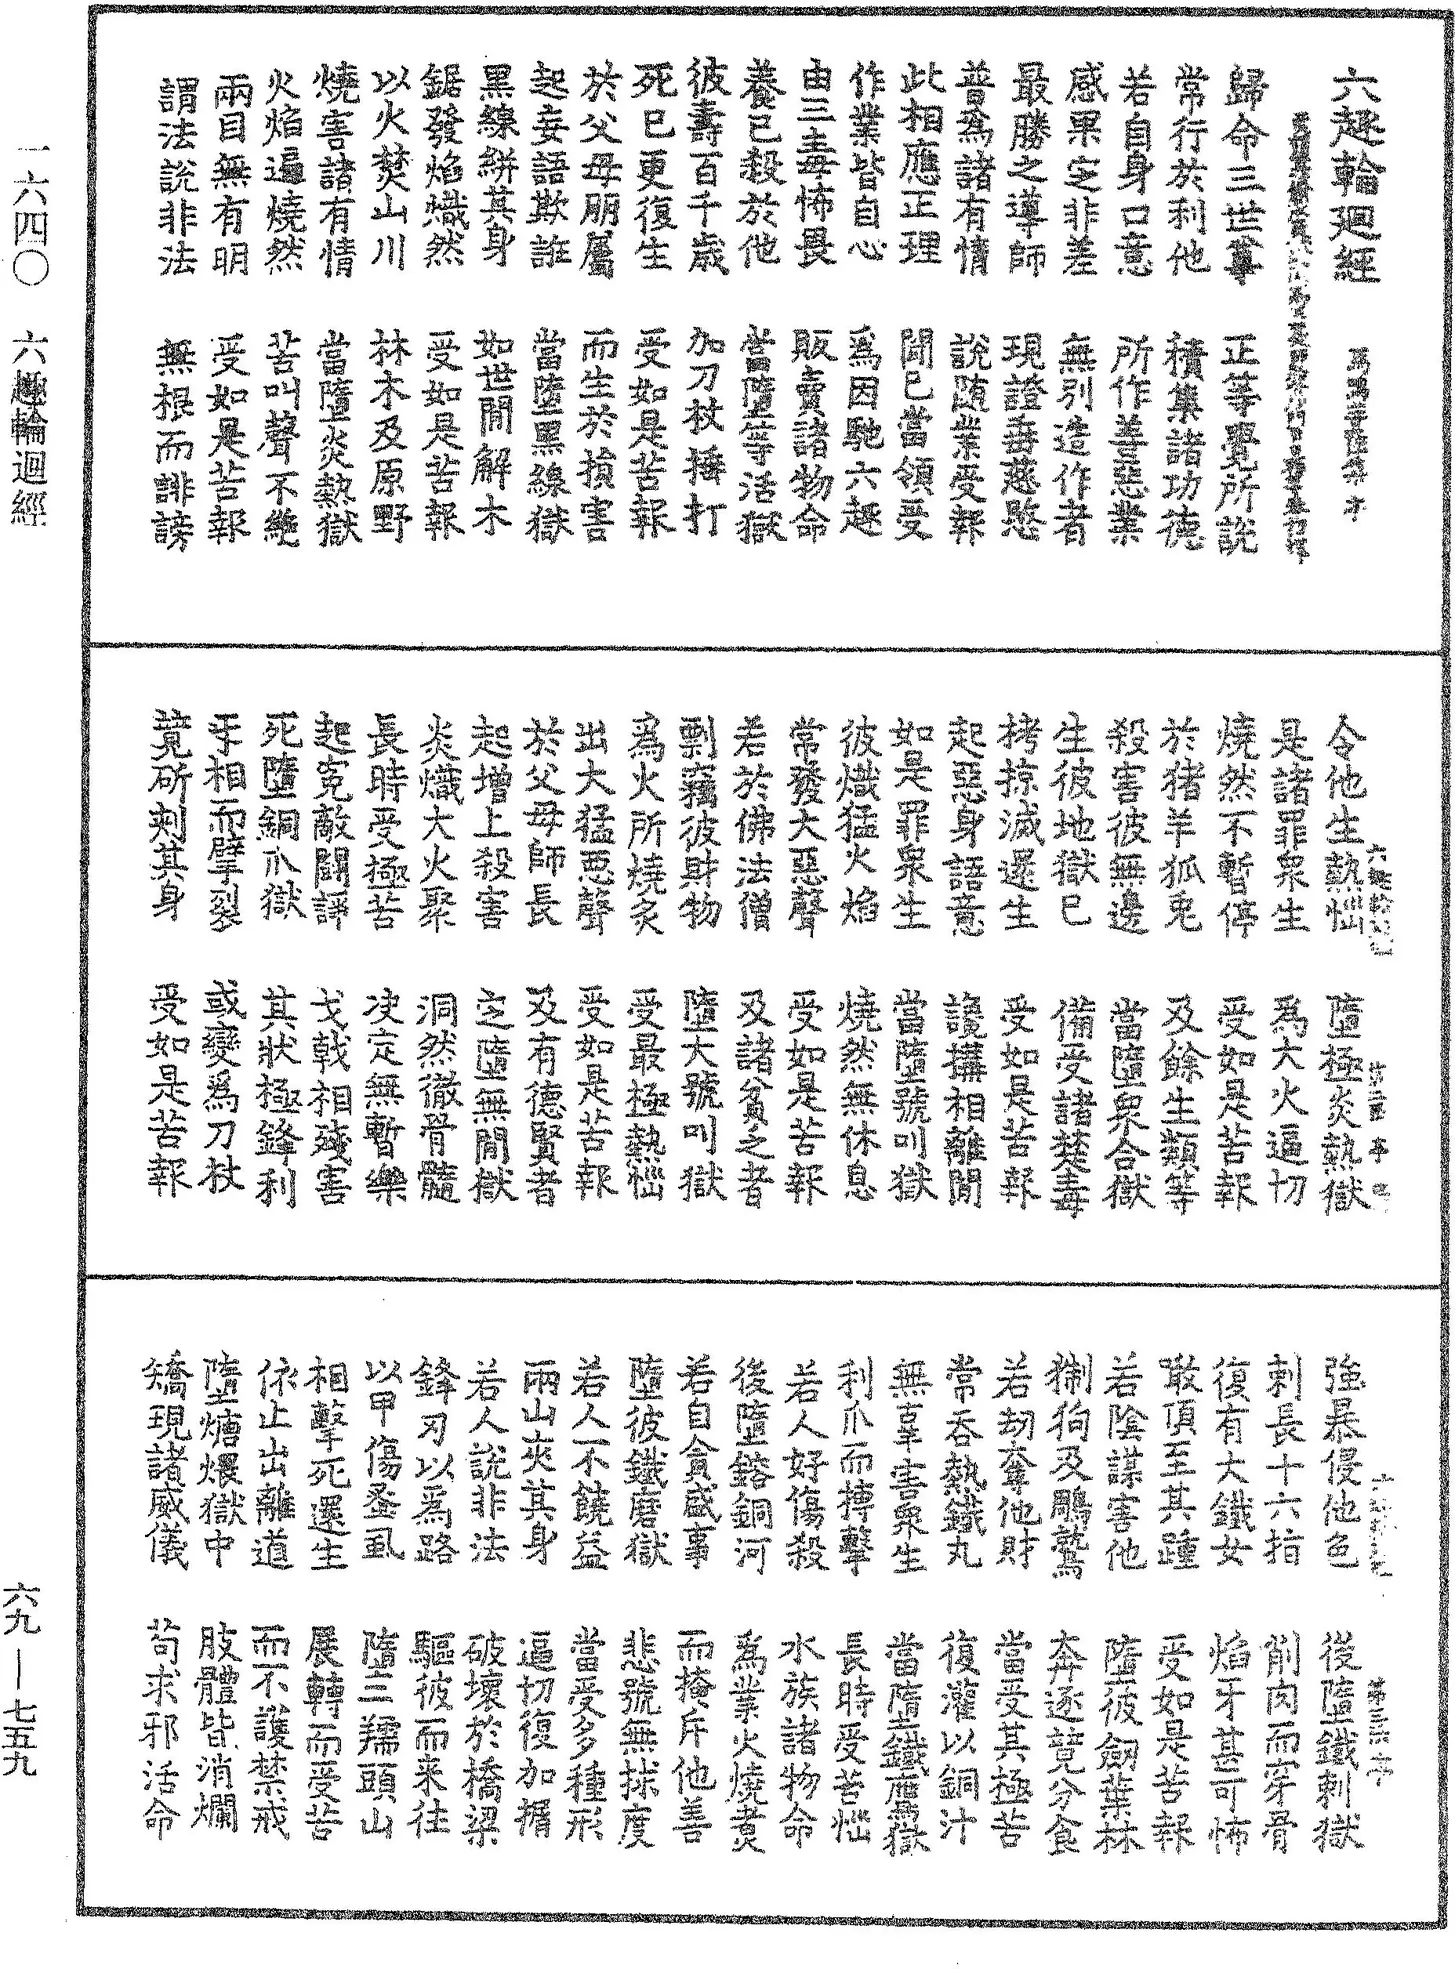 六趣輪迴經
馬鳴菩薩集
歸命三世尊　正等覺所說
常行於利他　積集諸功德
若自身口意　所作善惡業
感果定非差　無別造作者
最勝之導師　現證垂慈愍
普為諸有情　說隨業受報
此相應正理　聞已當領受
作業皆自心　為因馳六趣
由三毒怖畏　販賣諸物命
養已殺於他　當墮等活獄
彼壽百千歲　加刀杖捶打
死已更復生　受如是苦報
於父母朋屬　而生於損害
起妄語欺誑　當墮黑線獄
黑線絣其身　如世間解木
鋸發焰熾然　受如是苦報
以火焚山川　林木及原野
燒害諸有情　當墮炎熱獄
火焰遍燒然　苦叫聲不絕
兩目無有明　受如是苦報
謂法說非法　無根而誹謗
令他生熱惱　墮極炎熱獄
是諸罪衆生　為大火逼切
燒然不暫停　受如是苦報
於猪羊狐兎　及餘生類等
殺害彼無邊　當墮衆合獄
生彼地獄已　備受諸楚毒
拷掠滅還生　受如是苦報
起惡身語意　讒搆相離間
如是罪衆生　當墮號叫獄
彼熾猛火焰　燒然無休息
常發大惡聲　受如是苦報
若於佛法僧　及諸貧乏者
剽竊彼財物　墮大號叫獄
為火所燒炙　受最極熱惱
出大猛惡聲　受如是苦報
於父母師長　及有德賢者
起增上殺害　定墮無間獄
炎熾大火聚　洞然徹骨髓
長時受極苦　決定無暫樂
起冤敵鬪諍　戈戟相殘害
死墮銅爪獄　其狀極鋒利
手相而擘裂　或變為刀杖
競斫刺其身　受如是苦報
強暴侵他色　後墮鐵刺獄
刺長十六指　削肉而穿骨
復有大鐵女　焰牙甚可怖
噉頂至其踵　受如是苦報
若陰謀害他　墮彼劍葉林
猘狗及鵰鷲　奔逐競分食
若劫奪他財　當受其極苦
常吞熱鐵丸　復灌以銅汁
無辜害衆生　當墮鐵鷹獄
利爪而搏擊　長時受苦惱
若人好傷殺　水族諸物命
後墮鎔銅河　為業火燒煑
若自貪盛事　而掩斥他善
墮彼鐵磨獄　悲號無救度
若人不饒益　當受多種形
兩山夾其身　逼切復加搘
若人說非法　破壞於橋梁
鋒刃以為路　驅彼而來往
以甲傷蚤虱　墮二羺頭山
相擊死還生　展轉而受苦
依止出離道　而不護禁戒
墮煻煨獄中　肢體皆消爛
矯現諸威儀　苟求邪活命
一六四〇　六趣輪迴經
六九—七五九